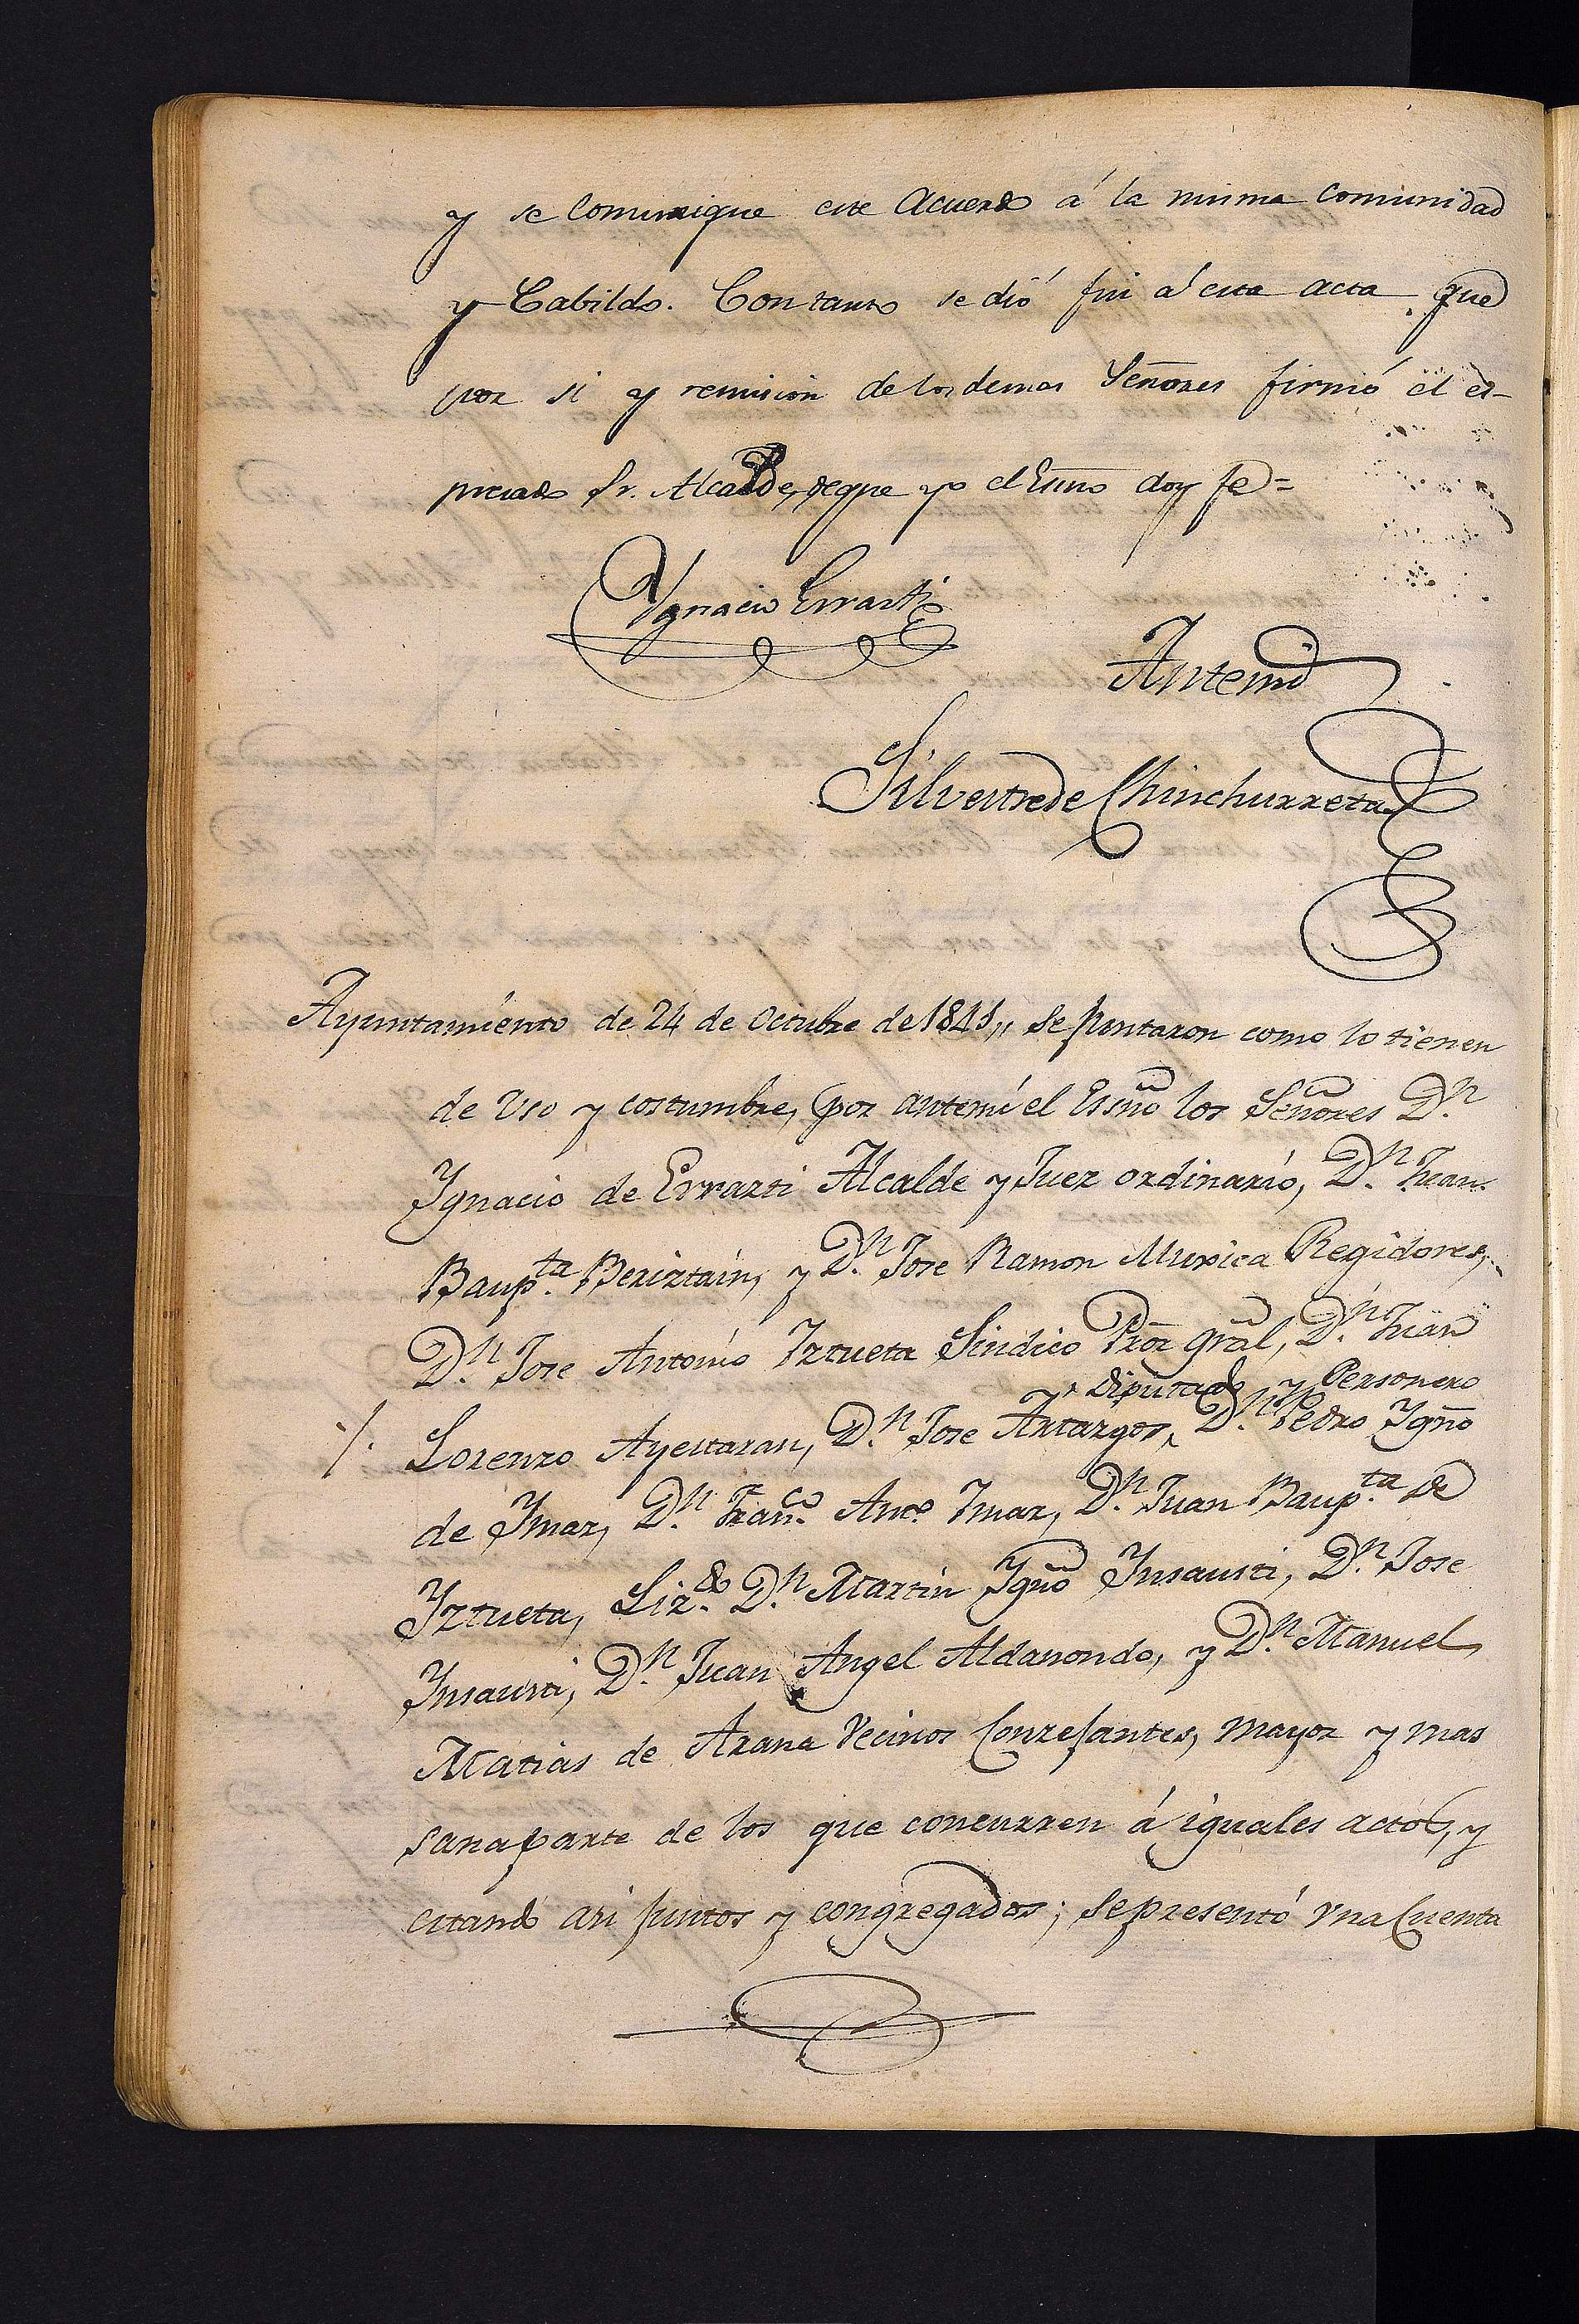 y se comunique este Acuerdo á la misma comunidad
y Cabildo. Con tanto se dió fin á esta acta, que
por si y remision de los demas Señores firmó el es-
presado Sr. Alcalde, de que yo el Essno doy fe=
Ygnacio Errasti
Antemi
Silvestre de Chinchurreta
Ayuntamiento de 24 de Octubre de 1841,, se juntaron como lo tienen
de Uso y costumbre, por antemí el Essno los Señores Dn.
Ygnacio de Errazti Alcalde y Juez ordinario, Dn. Juan
Baupta. Beriztain, y Dn. Jose Ramon Muxica Regidores,
Dn. Jose Antonio Iztueta Sindico Pror gral, Dn. Juan
diputados y Personero
Lorenzo Ayestaran, Dn. Jose Artargos, Dn. Pedro Ygno
de Ymaz, Dn. Franco. Anto. Imaz, Dn. Juan Baupta. de
Yztueta, Lizdo. Dn. Martin Ygno Ynsausti, Dn. Jose
Ynsausti, Dn. Juan Angel Aldanondo, y Dn. Manuel
Matias de Arana Vecinos Conzejantes, mayor y mas
sana parte de los que concurren á iguales actos, y
estando asi juntos y congregados; se presentó Una Cuenta